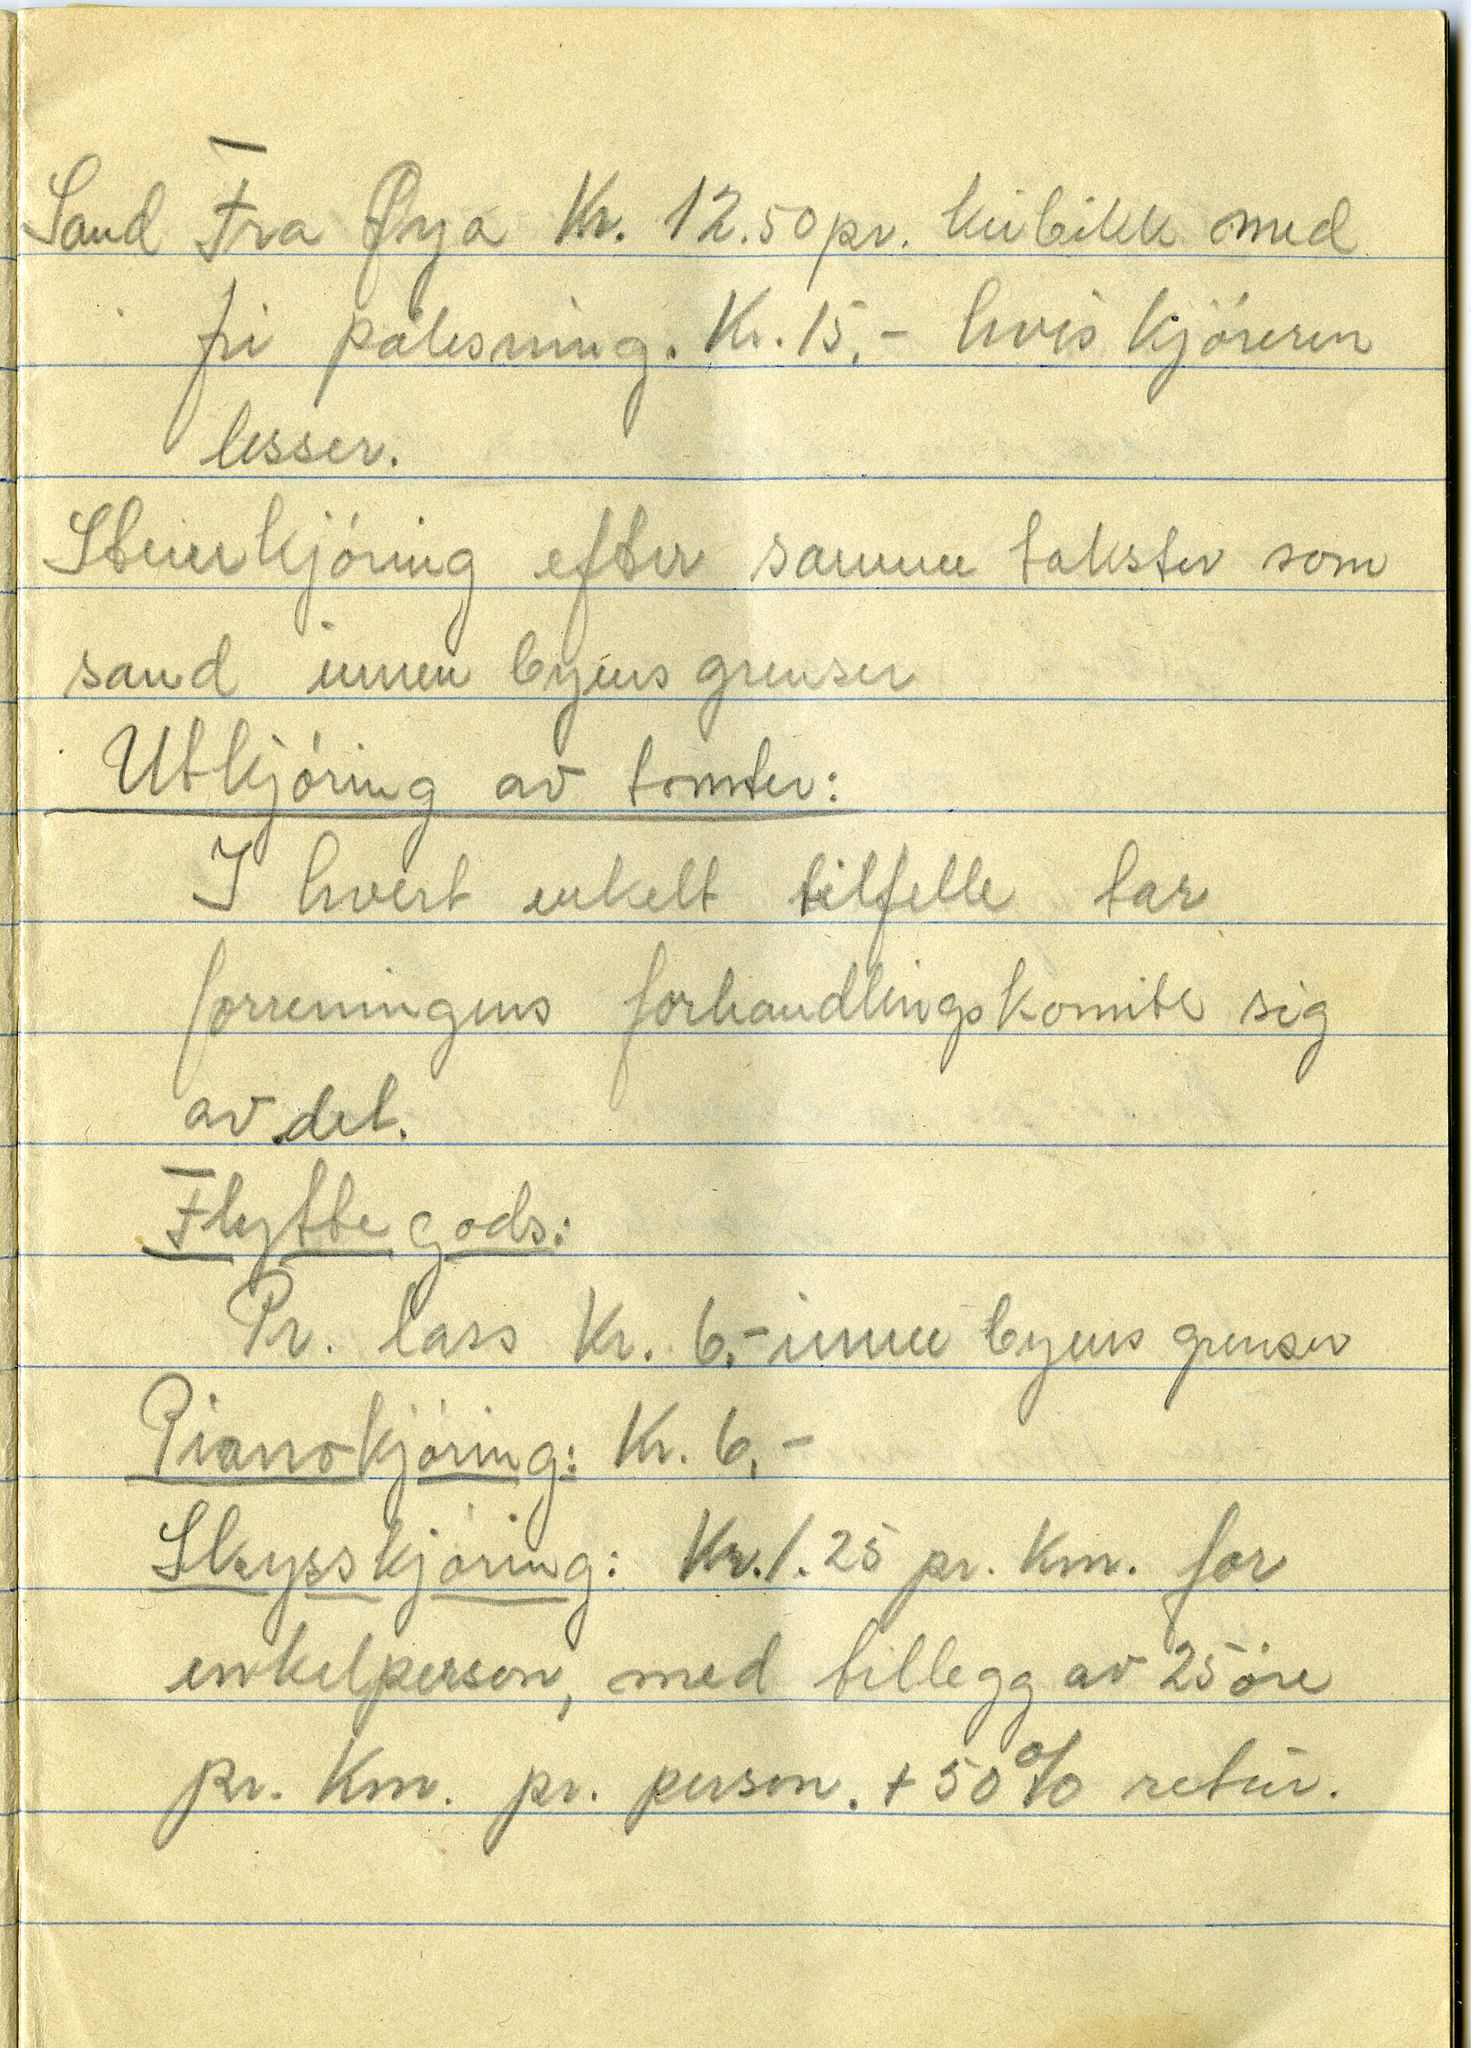 Sand Fra Øya Kr. 12.50 pr. kubikk med
fri pålesning. Kr. 15,- hvis kjóreren
lesser.
Steinkjóring efter samme takster som
sand innen byens grenser
Utkjóring av tomter:
I hvert enkelt tilfelle tar
forreningens forhandlingskomite sig
av det.
Flyttegods:
Pr. lass Kr. 6,- innen byens grenser
Pianokjóring: Kr. 6,-
Skysskjóring: Kr. 1.25 pr. Km. for
enkelperson, med tillegg av 25 óre
pr. Km. pr. person. + 50% retur.